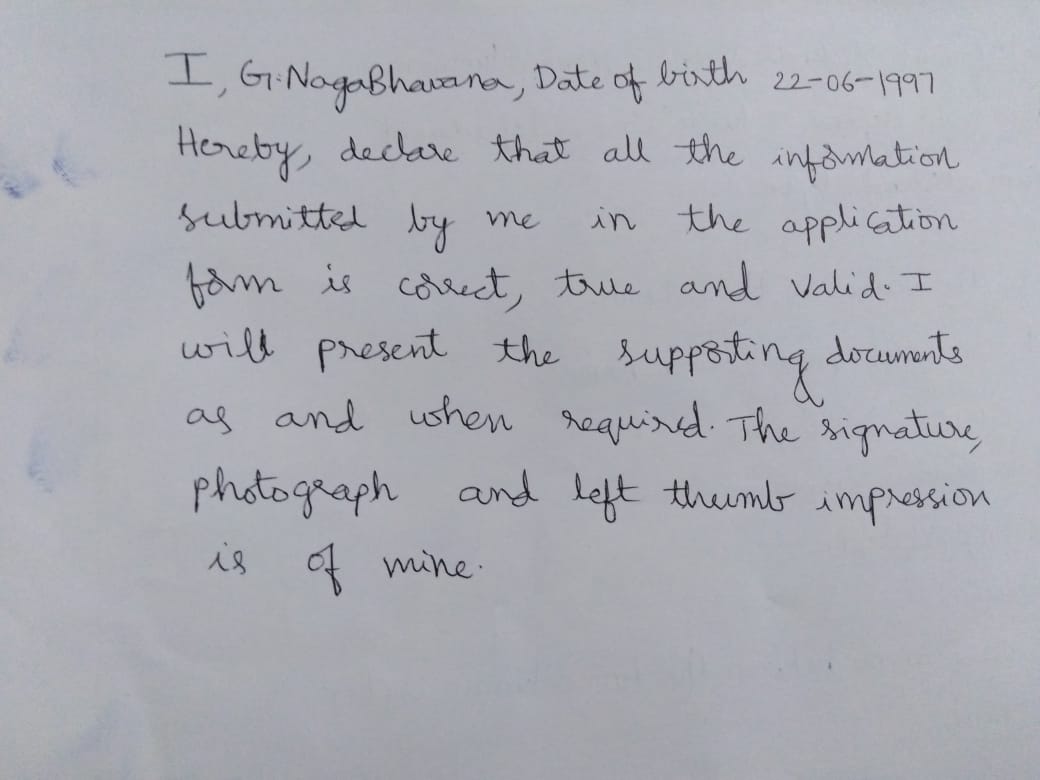 I, G. NagaBhavana, Date of birth 22-06-1997
Hereby, declare that all the information
submitted by me in the application
form is correct, true and valid. I
will present the supporting documents
as and when required. The signature,
photograph and left thumb impression
is of mine.